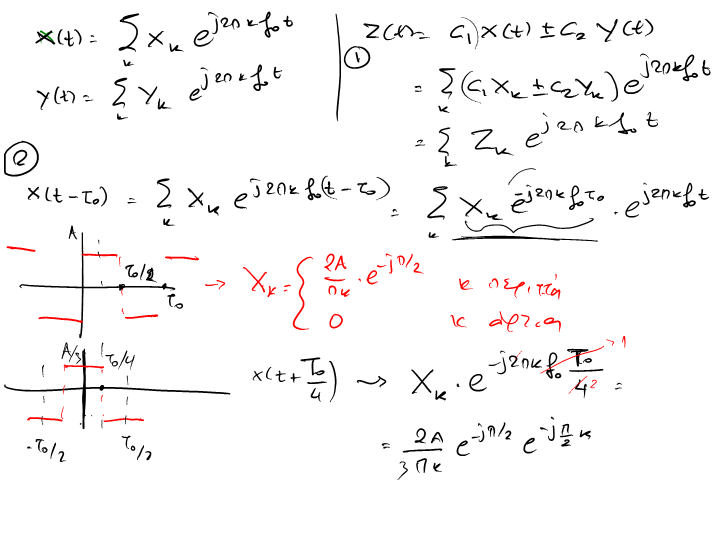 x(t) = Σ_k X_k e^{j2πkf₀t}
y(t) = Σ_k Y_k e^{j2πkf₀t}
① z(t) = c₁x(t) ± c₂ y(t)
= Σ_k (c₁X_k ± c₂Y_k) e^{j2πkf₀t}
= Σ_k Z_k e^{j2πkf₀t}
②
x(t-τ₀) = Σ_k X_k e^{j2πkf₀(t-τ₀)} = Σ_k X_k e^{-j2πkf₀τ₀} · e^{j2πkf₀t}
A
T₀/2
T₀
→ X_k = { 2A/πk · e^{-jπ/2} κ περιττά
0 κ άρτια
A/3
T₀/4
-T₀/2
T₀/2
x(t+T₀/4) → X_k · e^{-j2πkf₀T₀/4} =
1
2
= 2A/3πk e^{-jπ/2} e^{-jπ/2 k}